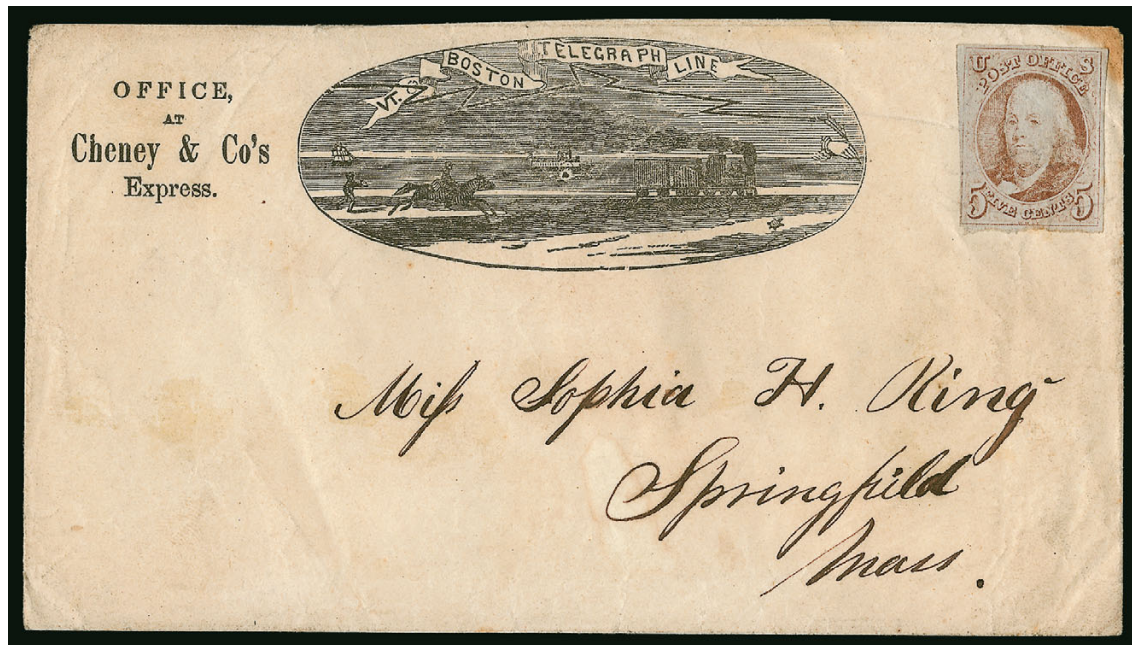 OFFICE,
AT
Cheney & Co's
Express.
VT. & BOSTON TELEGRAPH LINE
U S
POST OFFICE
FIVE CENTS
5 5
Miſs Sophia H. King
Springfield
Mass.